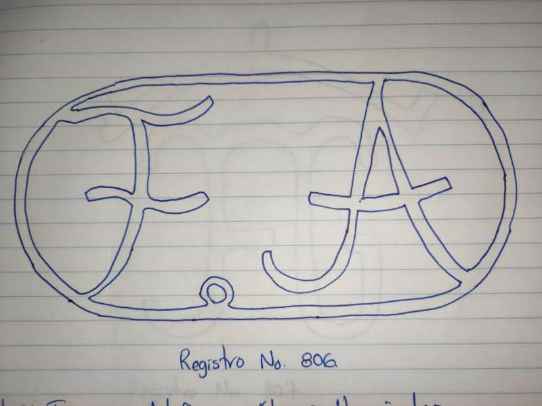 FA
Registro No. 806